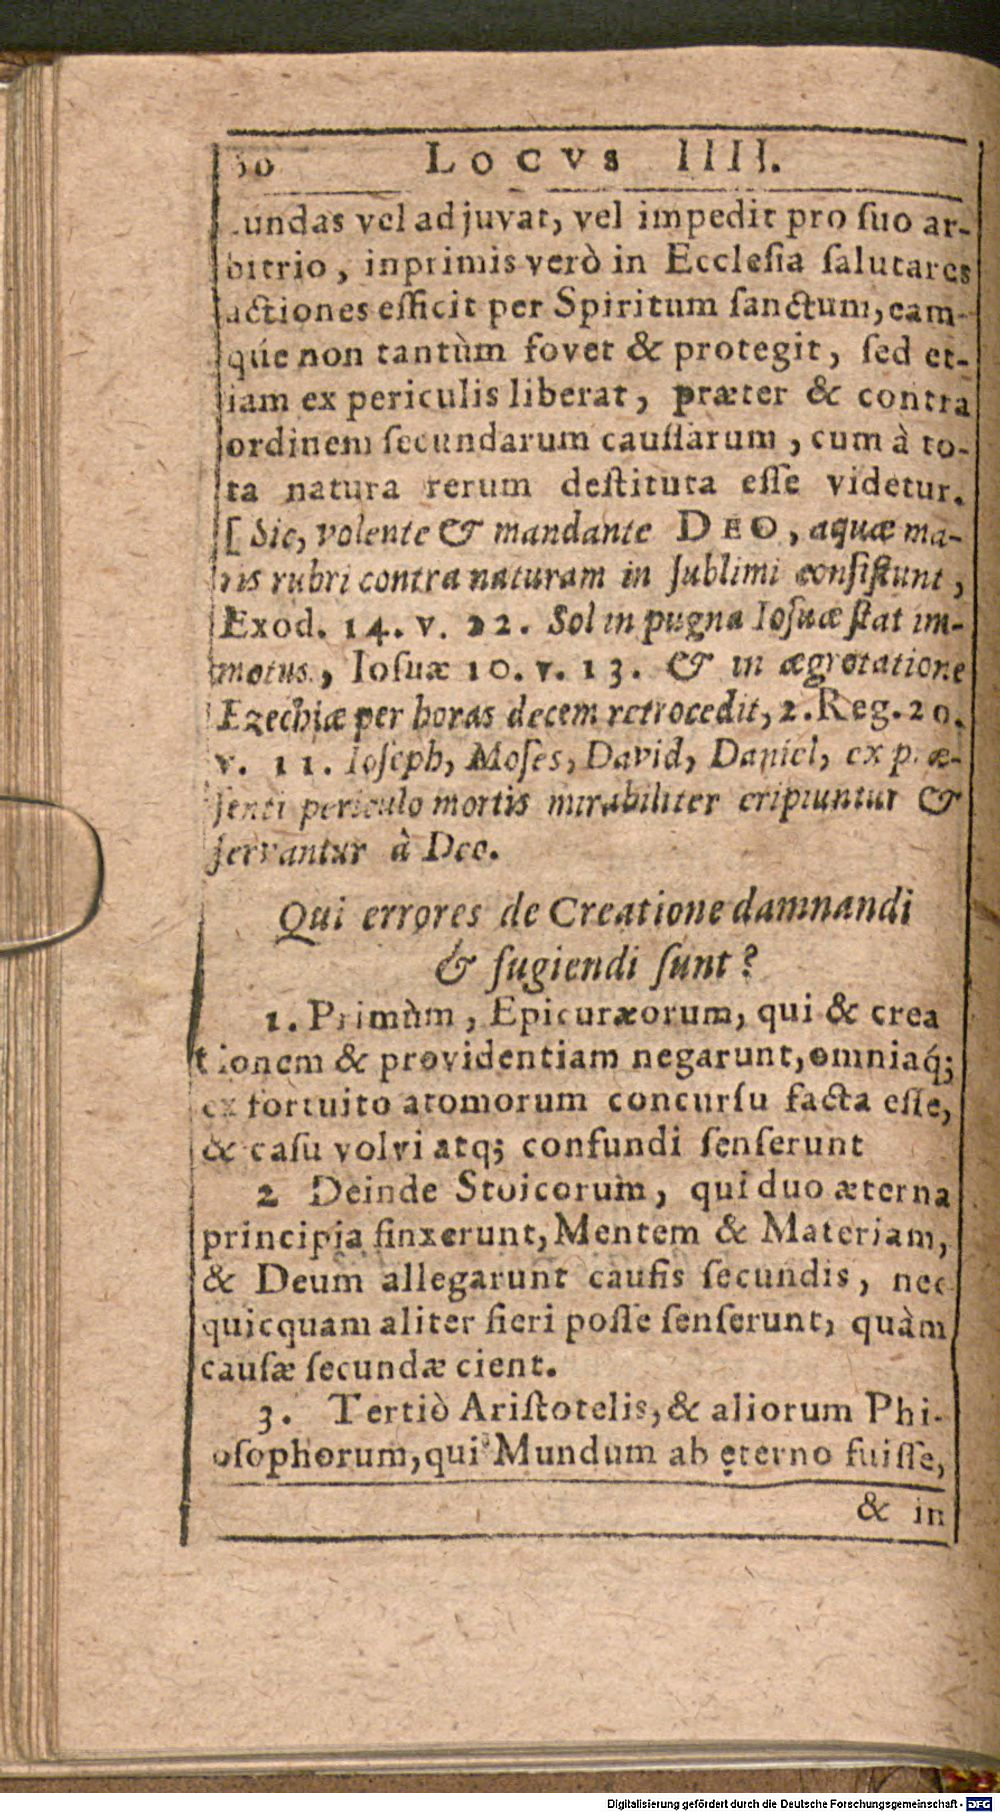 50 LOCVS IIII.
cundas vel adjuvat, vel impedit pro ſuo ar-
bitrio, inprimis verò in Eccleſia ſalutares
actiones efficit per Spiritum ſanctum, eam-
qúe non tantùm fovet & protegit, ſed et-
iam ex periculis liberat, præter & contra
ordinem ſecundarum cauſſarum, cum à to-
ta natura rerum deſtituta eſſe videtur.
[Sic, volente & mandante DEO, aquæ ma-
ris rubri contra naturam in ſublimi conſiſtunt,
Exod. 14. v. 22. Sol in pugna Ioſuæ ſtat im-
motus, Ioſuæ 10. v. 13. & in ægrotatione
Ezechiæ per horas decem retrocedit, 2. Reg. 20.
v. 11. Ioſeph, Moſes, David, Daniel, ex præ-
ſenti periculo mortis mirabiliter eripiuntur &
ſervantur à Deo.
Qui errores de Creatione damnandi
& fugiendi ſunt?
1. Primùm, Epicuræorum, qui & crea
tionem & providentiam negarunt, omniaq́;
ex fortuito atomorum concurſu facta eſſe,
& caſu volvi atq; confundi ſenſerunt
2 Deinde Stoicorum, qui duo æterna
principia finxerunt, Mentem & Materiam,
& Deum allegarunt cauſis ſecundis, nec
quicquam aliter fieri poſſe ſenſerunt, quàm
cauſæ ſecundæ cient.
3. Tertiò Ariſtotelis, & aliorum Phi-
oſophorum, qui Mundum ab ęterno fuiſſe,
& in
Digitalisierung gefördert durch die Deutsche Forschungsgemeinschaft - DFG